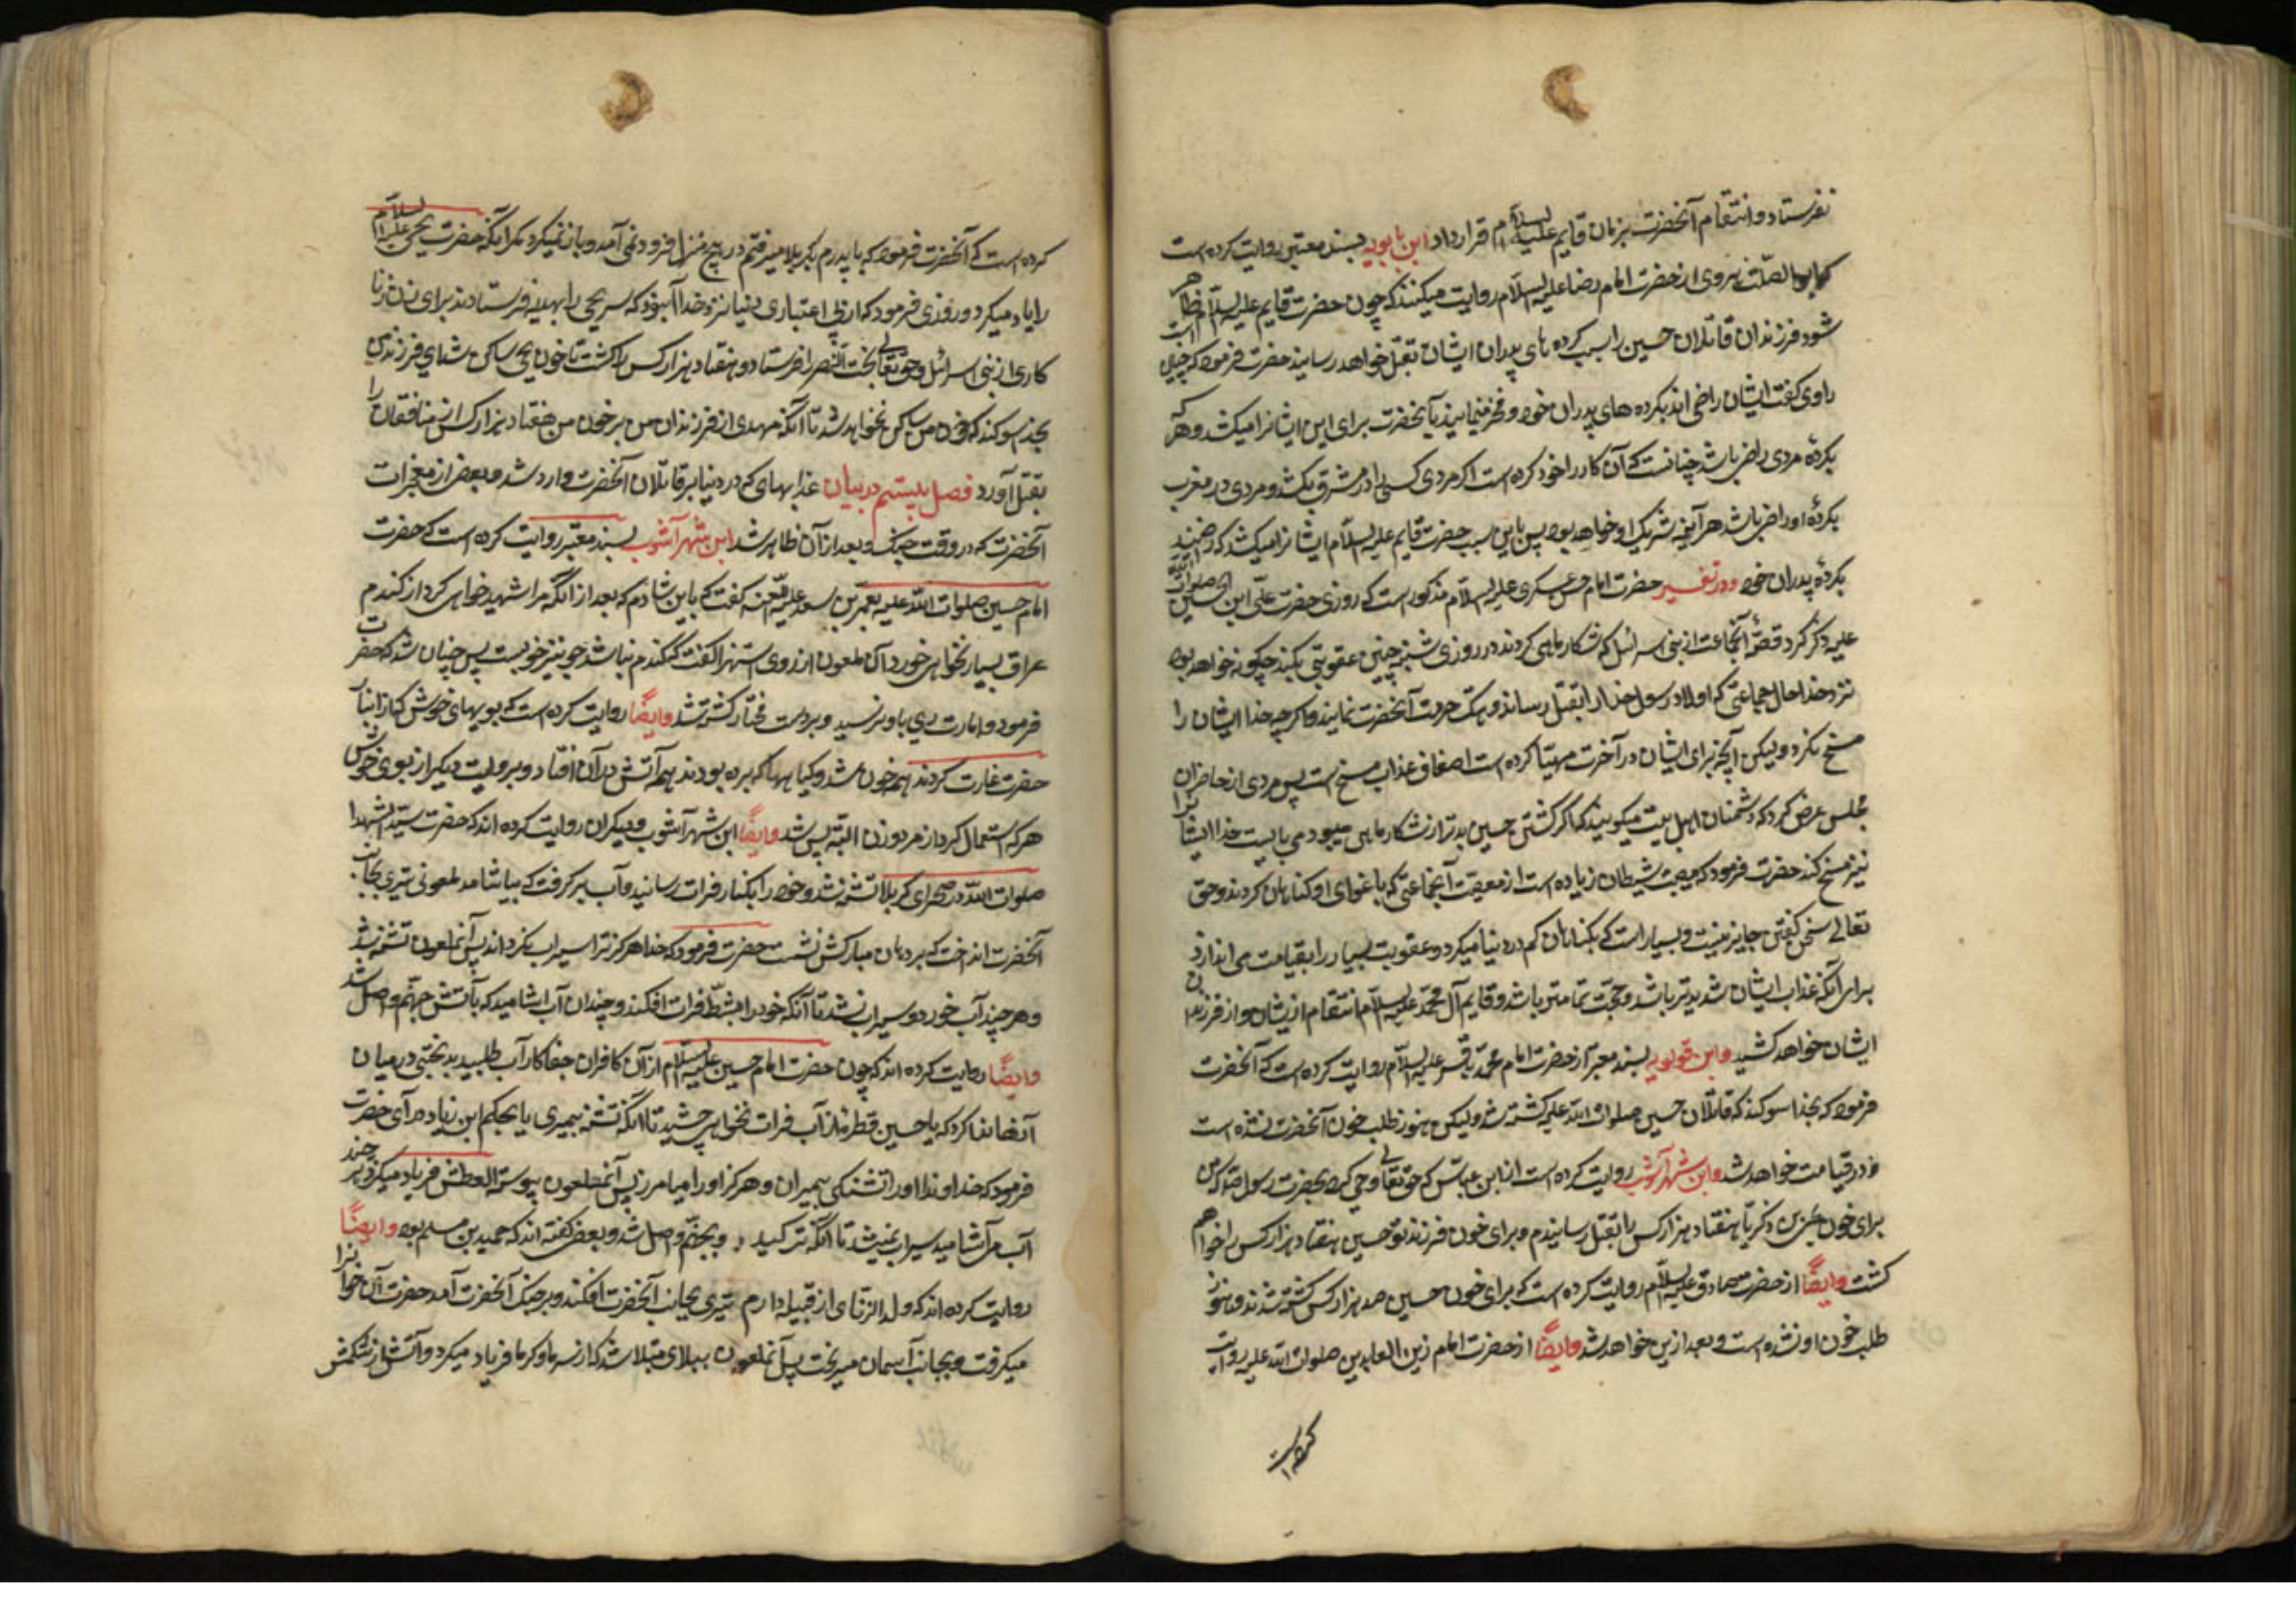 نفرستاد و انتقام آنحضرت بزمان قایم علیه السلام قرار داد ابن بابویه بسند معتبر روایت کرده است
که ابو الصلت هروی از حضرت امام رضا علیه السلام روایت میکند که چون حضرت قایم علیه السلام ظاهر
شود فرزندان قاتلان حسین را بسبب کرده‌های پدران ایشان بقتل خواهد رسانید حضرت فرمود که چنین است
راوی گفت ایشان راضی اند بکرده های پدران خود و فخر مینمایند بآن حضرت برای این ایشانرا میکشد و هر که
بکردهٔ مردی راضی باشد چنانست که آن کار را خود کرده است اگر مردی کسی را در مشرق بکشد و مردی در مغرب
بکردهٔ او راضی باشد هر آینه شریک او خواهد بود پس باین سبب حضرت قایم علیه السلام ایشانرا میکشد که راضیند
بکردهٔ پدران خود و در تفسیر حضرت امام حسن عسکری علیه السلام مذکور است که روزی حضرت علی ابن الحسین صلوات الله
علیه ذکر کرد قصهٔ آنجماعت از بنی اسرائیل که شکار ماهی کردند در روز شنبه چنین عقوبتی بکند چگونه خواهد بود
نزد خدا حال جماعتی که اولاد رسول خدا را بقتل رسانند و هتک حرمت آنحضرت نمایند و اگر چه خدا ایشان را
مسخ نکرد و لیکن آنچه برای ایشان در آخرت مهیّا کرده است اضعاف عذاب مسخ است پس مردی از حاضران
مجلس عرض کرد که دشمنان اهل بیت میگویند که اگر کشتن حسین بدتر از شکار ماهی میبود می بایست خدا ایشانرا
نیز مسخ کند حضرت فرمود که معصیت شیطان زیاده است از معصیت آنجماعتی که باغوای او گناهان کردند و حق
تعالی سخن گفتن جایز نیست و بسیار است که بگناهان کم در دنیا میگیرد و عقوبت بسیار را بقیامت می اندازد
برای آنکه عذاب ایشان شدیدتر باشد و حجت تمامتر باشد و قایم آل محمد علیه السلام انتقام از ایشان و از فرزندان
ایشان خواهد کشید و ابن قولویه بسند معتبر از حضرت امام محمد باقر علیه السلام روایت کرده است که آنحضرت
فرمود که بخدا سوگند که قاتلان حسین صلوات الله علیه کشته شد و لیکن هنوز طلب خون آنحضرت نشده است
و در قیامت خواهد شد و ابن شهرآشوب روایت کرده است از ابن عباس که حقتعالی وحی کرد بحضرت رسول که من
برای خون یحیی بن ذکریّا هفتاد هزار کس را بقتل رسانیدم و برای خون فرزند تو حسین هفتاد هزار کس را خواهم
کشت و ایضاً از حضرت صادق علیه السلام روایت کرده است که برای خون حسین صد هزار کس کشته شدند و هنوز
طلب خون او نشده است و بعد از این خواهد شد و ایضاً از حضرت امام زین العابدین صلوات الله علیه روایت
کرده است
کرده است که آنحضرت فرمود که با پدرم بکربلا میرفتم در هیچ منزل فرود نمی آمد و بار نمیکرد مگر آنکه حضرت یحیی علیه السلام
را یاد میکرد و روزی فرمود که از بی اعتباری دنیا نزد خدا آن بود که سر یحیی را بهدیه فرستادند برای زن زنا
کاری از بنی اسرائیل و حق تعالی بخت النصر را فرستاد و هفتاد هزار کس را کشت تا خون یحیی ساکن شد ای فرزند من
بخدا سوگند که خون من ساکن نخواهد شد تا آنکه مهدی از فرزندان من بر خون من هفتاد هزار کس از منافقان را
بقتل آورد فصل بیستم در بیان عذابهای که در دنیا بر قاتلان آنحضرت وارد شد و بعضی از معجزات
آنحضرت که در وقت جنک و بعد از آن ظاهر شد ابن شهر آشوب بسند معتبر روایت کرده است که حضرت
امام حسین صلوات الله علیه بعمر بن سعد علیه اللعنه گفت که باین شادم که بعد از آنکه مرا شهید خواهی کرد از گندم
عراق بسیار نخواهی خورد آن ملعون از روی استهزا گفت که گندم نباشد جو نیز خوبست پس چنان شد که حضرت
فرمود و امارت ری باو نرسید و بر دست مختار کشته شد و ایضاً روایت کرده است که بویهای خوش که از انبار
حضرت غارت کردند همه خون شد و گیاهها که برده بودند همه آتش در آن افتاد و بروایت دیگر از بوی خوش
هر که استعمال کرد از مرد و زن البته پیس شد و ایضاً ابن شهرآشوب و دیگران روایت کرده اند که حضرت سید الشهدا
صلوات الله در صحرای کربلا تشنه شد و خود را بکنار فرات رسانید و آب بر گرفت که بیاشامد ملعونی تیری بجانب
آنحضرت انداخت که بر دهان مبارکش نشست حضرت فرمود که خدا هرگز ترا سیراب نگرداند پس آنملعون تشنه شد
و هر چند آب خورد و سیراب نشد تا آنکه خود را بشط فرات افکند و چندان آب اشامید که بآتش جهنّم واصل شد
و ایضاً روایت کرده اند که چون حضرت امام حسین علیه السلام از آن کافران جفاکار آب طلبید بدبختی در میان
آنها ندا کرد که یا حسین قطرهٔ از آب فرات نخواهی چشید تا آنکه تشنه بمیری یا بحکم ابن زیاد در آی حضرت
فرمود که خداوندا او را تشنگی بمیران و هرگز او را میامرز پس آنملعون پیوسته العطش فریاد میکرد و هر چند
آب می آشامید سیراب نمیشد تا آنکه ترکید و بجهنّم واصل شد و بعضی گفته اند که حمید بن مسلم بود و ایضاً
روایت کرده اند که ولد الزنای از قبیله دارم تیری بجانب آنحضرت افکند و بر حنک آنحضرت آمد حضرت آن خونرا
میگرفت و بجانب آسمان میریخت پس آنملعون ببلای مبتلا شد که از سرما و گرما فریاد میکرد و آتش از شکمش